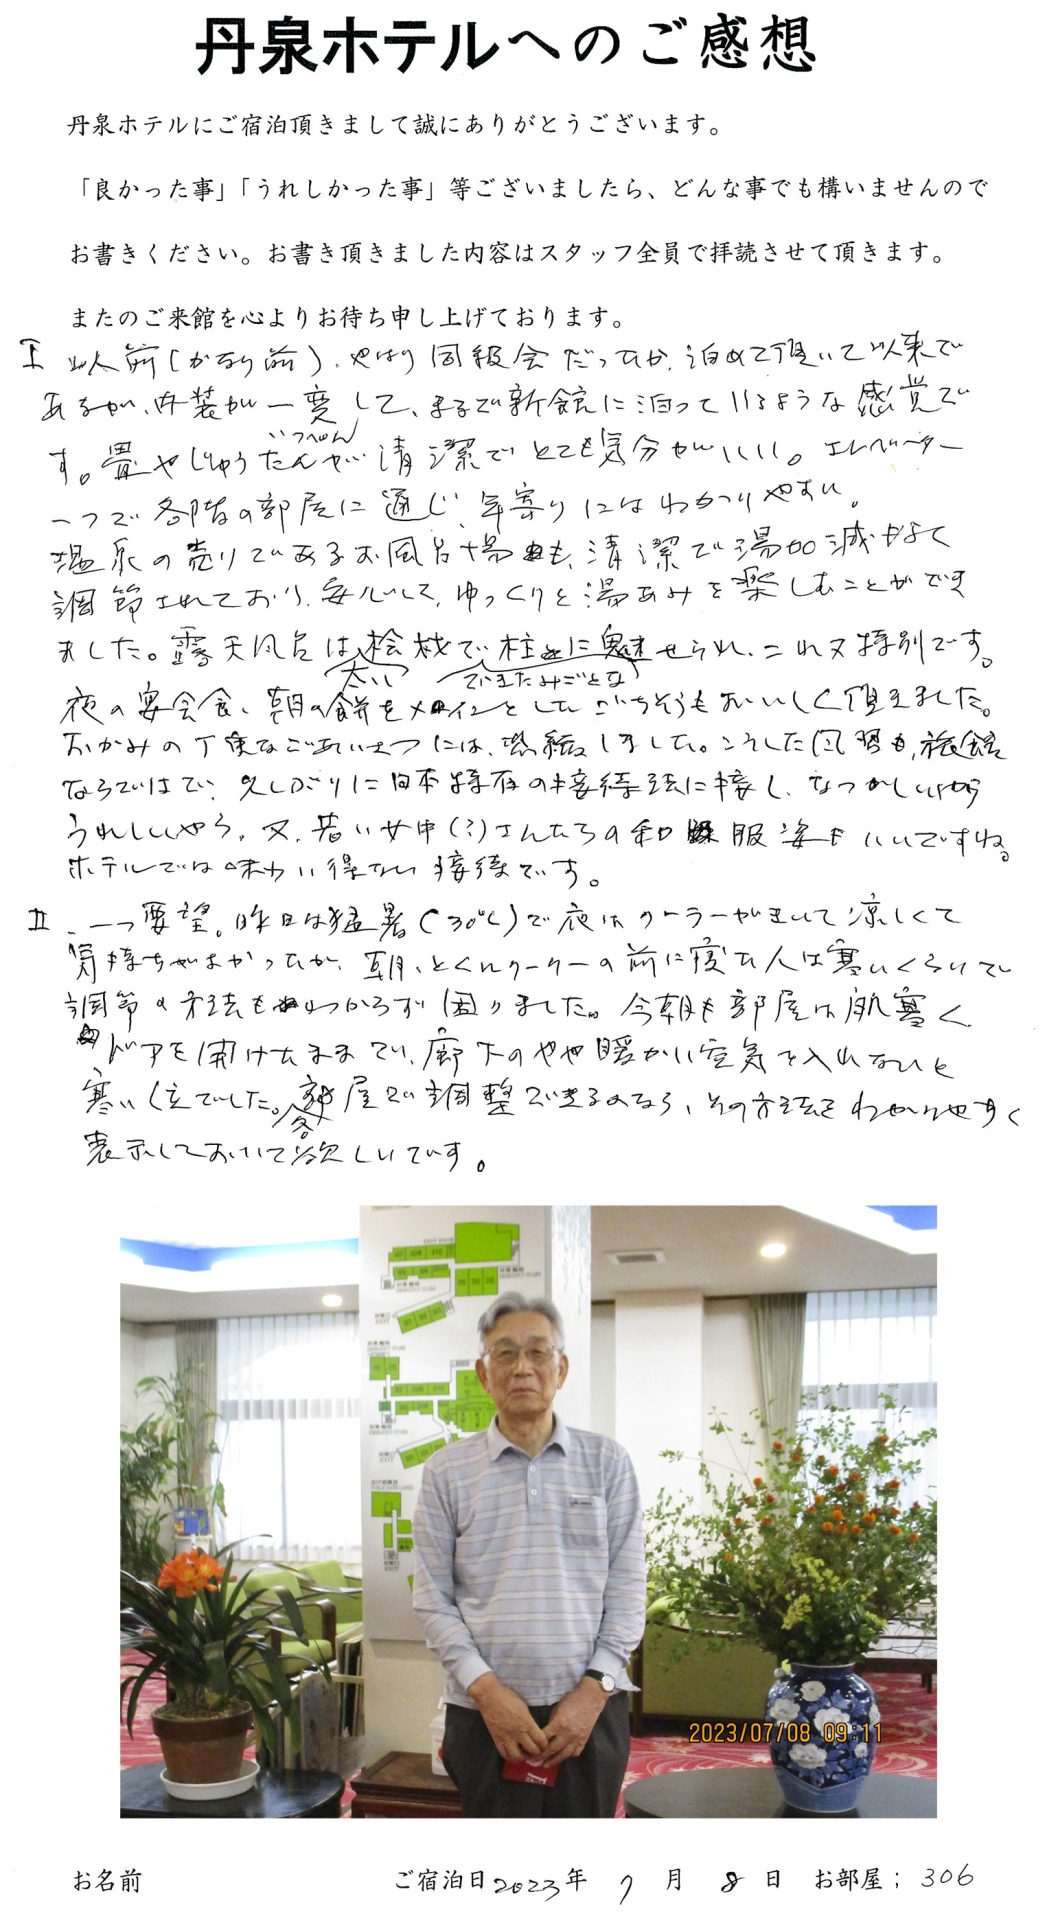 丹泉ホテルへのご感想
丹泉ホテルにご宿泊頂きまして誠にありがとうございます。
「良かった事」「うれしかった事」等ございましたら、どんな事でも構いませんので
お書きください。お書き頂きました内容はスタッフ全員で拝読させて頂きます。
またのご来館を心よりお待ち申し上げております。
I 以前(かなり前)、やはり同級会だったか、泊めて頂いて以来で
あるが、内装が一変して、まるで新館に泊っているような感覚で
いっぺん
す。畳やじゅうたんが清潔でとても気分がいい。エレベーター
一つで各階の部屋に通じ、年寄りにはわかりやすい。
温泉の売りであるお風呂場も、清潔で湯加減がよく
調節されており、安心して、ゆっくりと湯あみを楽しむことができ
ました。露天風呂は桧材で柱に魅せられ、これ又特別です。
太い できたみごとな
夜の宴会食、朝の餅をメインとしたごちそうもおいしく頂きました。
おかみの丁重なごあいさつには、恐縮しました。こうした風習も、旅館
ならではで、久しぶりに日本特有の接待法に接し、なつかしいやら
うれしいやら、又、若い女中(?)さんたちの和服姿もいいですね。
ホテルでは味わい得ない接待です。
II 、一つ要望。昨日は猛暑(30℃)で夜はクーラーがきいて涼しくて
気持ちがよかったが、朝、とくにクーラーの前に寝た人は寒いくらいで
調節の方法もわからず困りました。今朝も部屋は肌寒く
ドアを開けたままで、廊下のやや暖かい空気を入れないと
寒い位でした。各部屋で調整できるのなら、その方法をわかりやすく
表示しておいて欲しいです。
2023/07/08 09:11
お名前 ご宿泊日 2023年 7 月 8 日 お部屋; 306